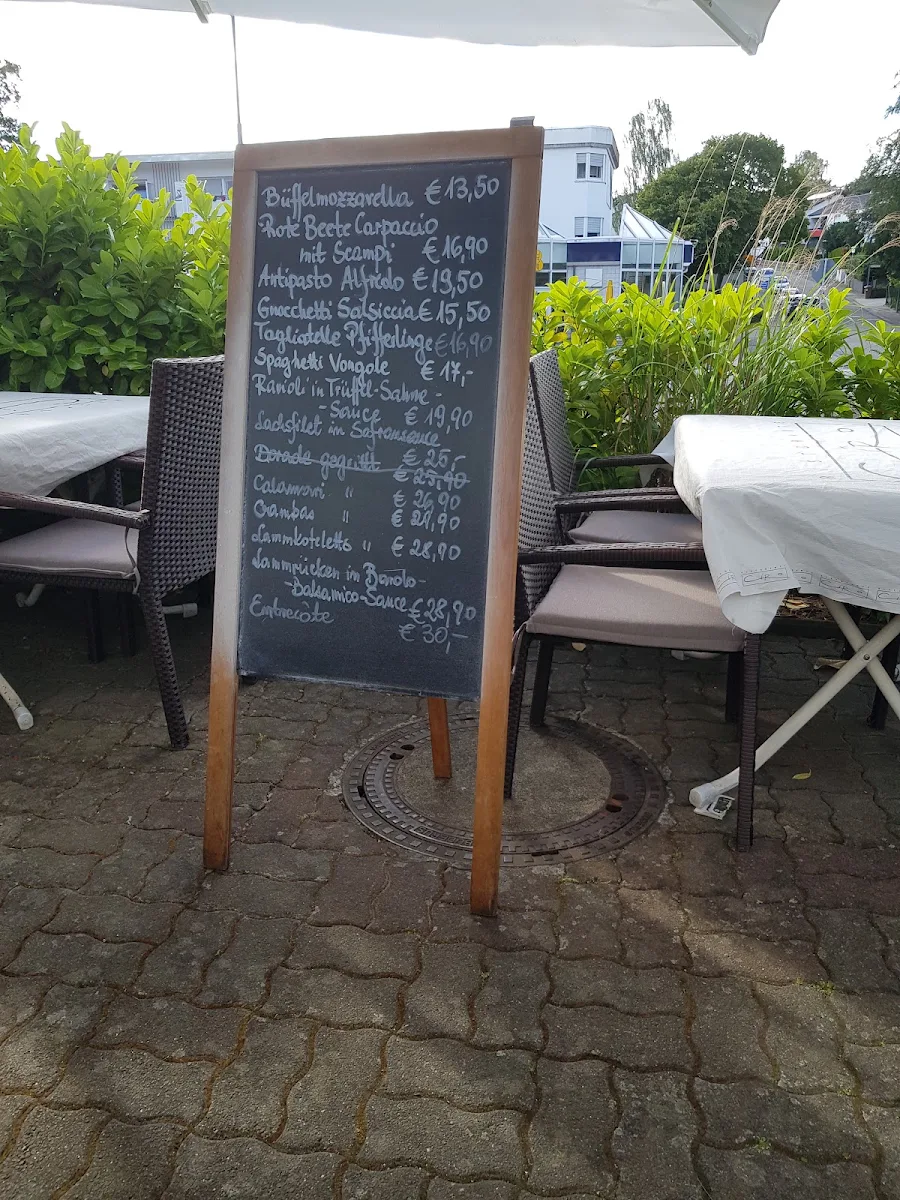 Büffelmozzarella €13,50
Rote Beete Carpaccio
mit Scampi €16,90
Antipasto Alfredo €19,50
Gnocchetti Salsiccia €15,50
Tagliatelle Pfifferlinge €16,90
Spaghetti Vongole €17,-
Ravioli in Trüffel-Sahne-
-Sauce €19,90
Lachsfilet in Safransauce
€25,-
Dorade gegrillt €25,90
Calamari " €26,90
Gambas " €29,90
Lammkoteletts " €28,90
Lammrücken in Barolo-
-Balsamico-Sauce €28,90
Entrecôte €30,-